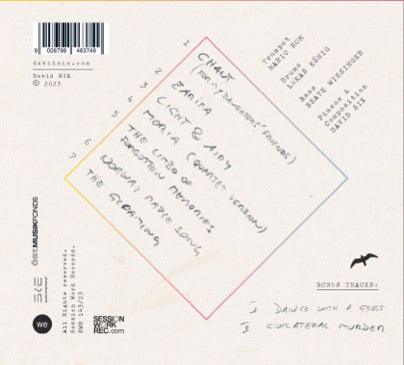 9 008798 463749
davidsix.com
David SIX
© 2023
1 CHAUT
(FOR MY DAUGHTERS' FRIENDS)
2 ZARIFA
3 LIGHT & AIRY
4 MORIA (QUARTET VERSION)
5 THE LIMBO OF
FORGOTTEN MEMORIES
6 NORWAY MAPLE SONG
7 THE GLOAMING
Trumpet
MARIO ROM
Drums
LUKAS KÖNIG
Bass
BEATE WIESINGER
Pianos &
Composition
DAVID SIX
BONUS TRACKS:
I DANCE WITH A GHOST
II COLLATERAL MURDER
ÖST.MUSIKFONDS
SKE
we
All Rights reserved.
Session Work Records.
SWR 143/23
SESSION
WORK
REC.com